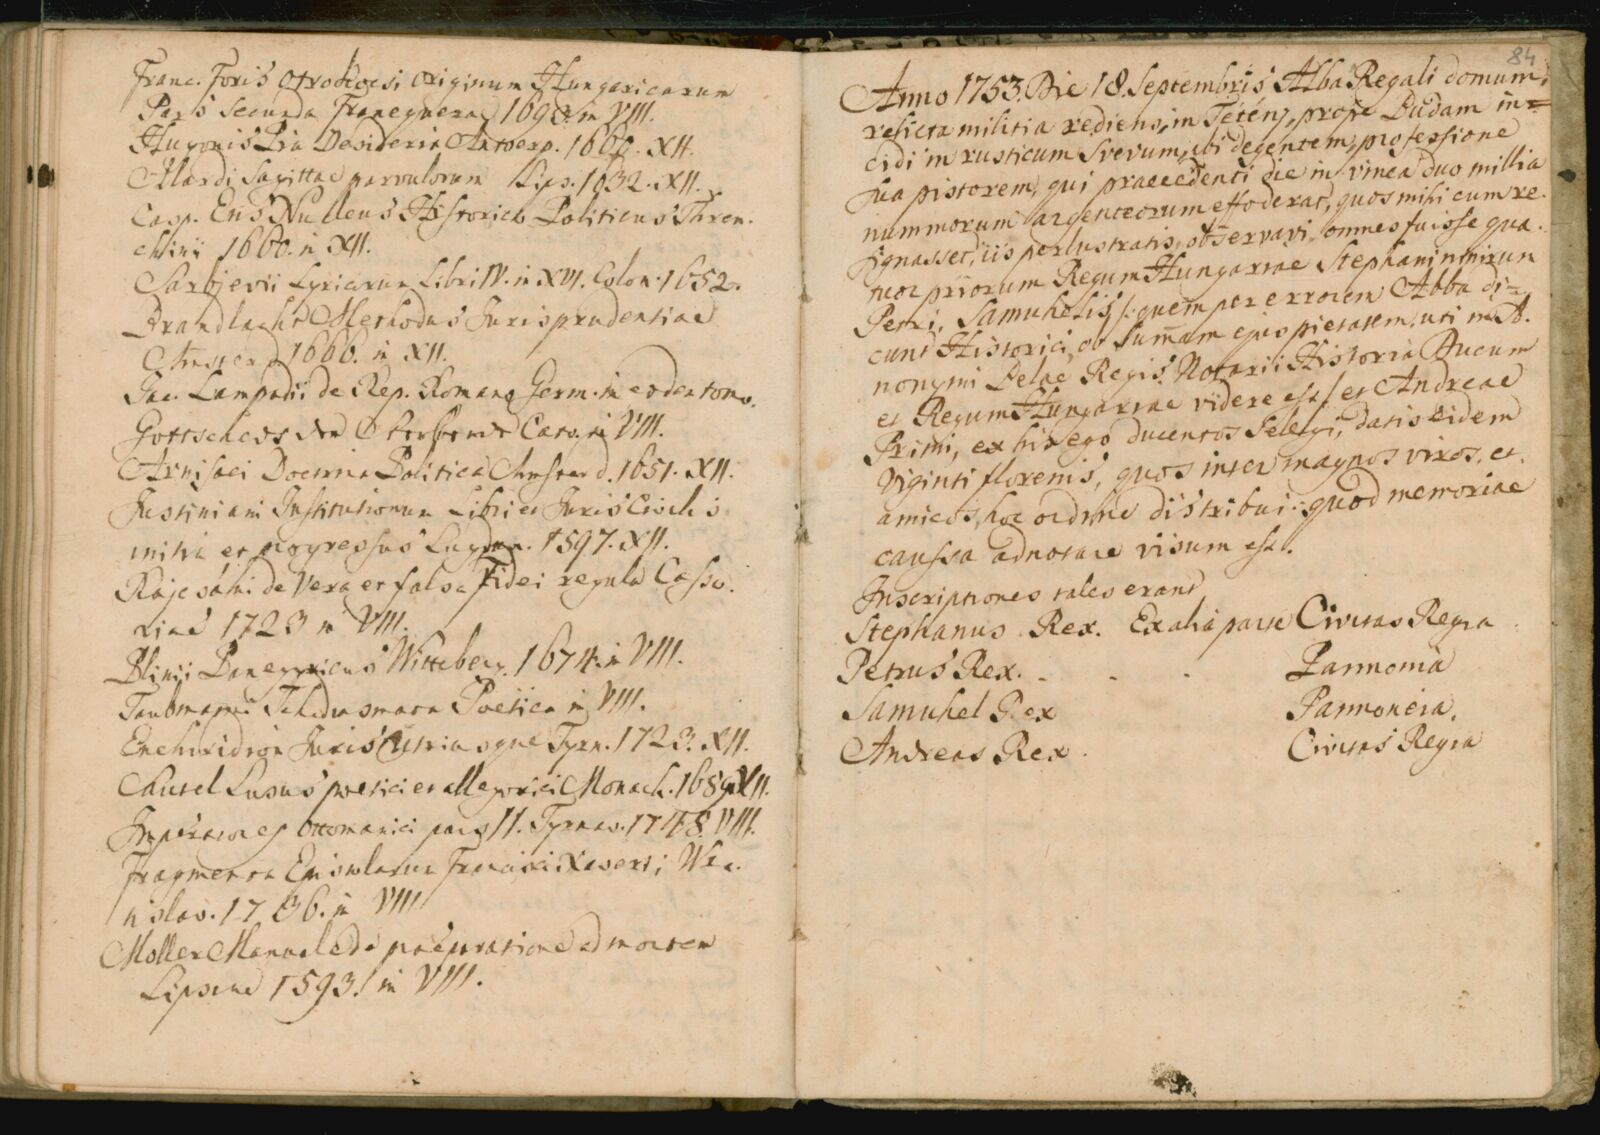 Franc. Foris Otrokocsi Originum Hungaricarum
Pars Secunda Franequerae 1693. in VIII.
Hugonis Pia Desideria Antverp. 1660. XII.
Alardi Sagittae parvulorum Lips. 1632. XII.
Casp. Ens Nucleus Historico Politicus Thren.
chinii 1660. in XII.
Sarbjevii Lyricorum Libri IV. in XVI. Colon. 1652.
Brandlacht Methodus Jurisprudentiae
Amsterd 1666. in XII.
Jac. Lampadii de Rep. Romano Germ. in eodem tomo.
Gottscheds der Sterbende Cato. in VIII.
Arnisaei Doctrina Politica Amsterd. 1651. XII.
Justiniani Institutionum Libri et Juris Civilis
initia et progressus Lugdun. 1597. XII.
Rajcsáni de Vera et falsa Fidei regula Casso.
viae 1723 in VIII.
Plinii Panegyricus Witteberg. 1674. in VIII.
Taubmanni Schediasmata Poëtica in VIII.
Enchiridion Juris Utriusque Tyrn. 1723. XII.
Lusus poetici et allegorici Monach. 1659. XII.
Imperatores Ottomanici pars II. Tyrnav. 1748. VIII.
Fragmenta Epistolarum Francisci Xaverii, Wra.
tislav. 1736. in VIII
Moller Manuale de praeparatione ad mortem
Lipsiae 1593. in VIII.
84
Anno 1753. Die 18. Septembris Alba Regali domum,
relicta militia rediens, in Tétény, prope Budam in=
cidi in rusticum Svevum, ibi degentem, professione
sua pistorem, qui praecedenti die in vinea duo millia
nummorum argenteorum effoderat, quos mihi cum re.
signasset, iis perlustratis, observavi, omnes fuisse qua.
tuor priorum Regum Hungariae Stephani nimirum
Petri, Samuhelis /: quem per errorem Abba di=
cunt Historici, ob sum̄am ejus pietatem, uti in A.
nonymi Belae Regis Notarii Historia Ducum
et Regum Hungariae videre est :/ et Andreae
Primi, ex his ego ducentos selegi, datis eidem
viginti florenis, quos inter magnos viros, et
amicos, hoc ordine distribui: quod memoriae
caussa adnotare visum est.
Inscriptiones tales erant
Stephanus Rex. Ex alia parte Civitas Regia
Petrus Rex. - . . Pannonia
Samuhel Rex Pannoneia.
Andreas Rex. Civitas Regia